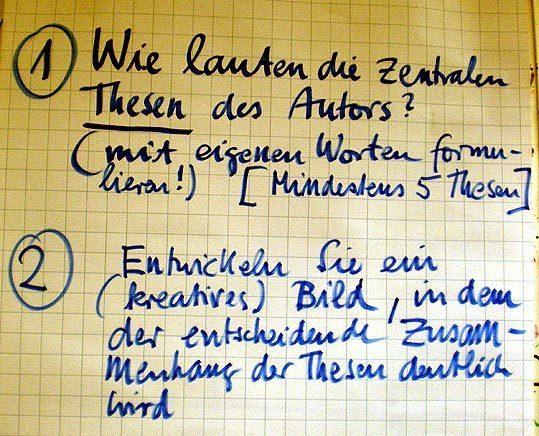 1 Wie lauten die zentralen
Thesen des Autors?
(mit eigenen Worten formu-
lieren!) [Mindestens 5 Thesen]
2 Entwickeln Sie ein
(kreatives) Bild, in dem
der entscheidende Zusam-
menhang der Thesen deutlich
wird